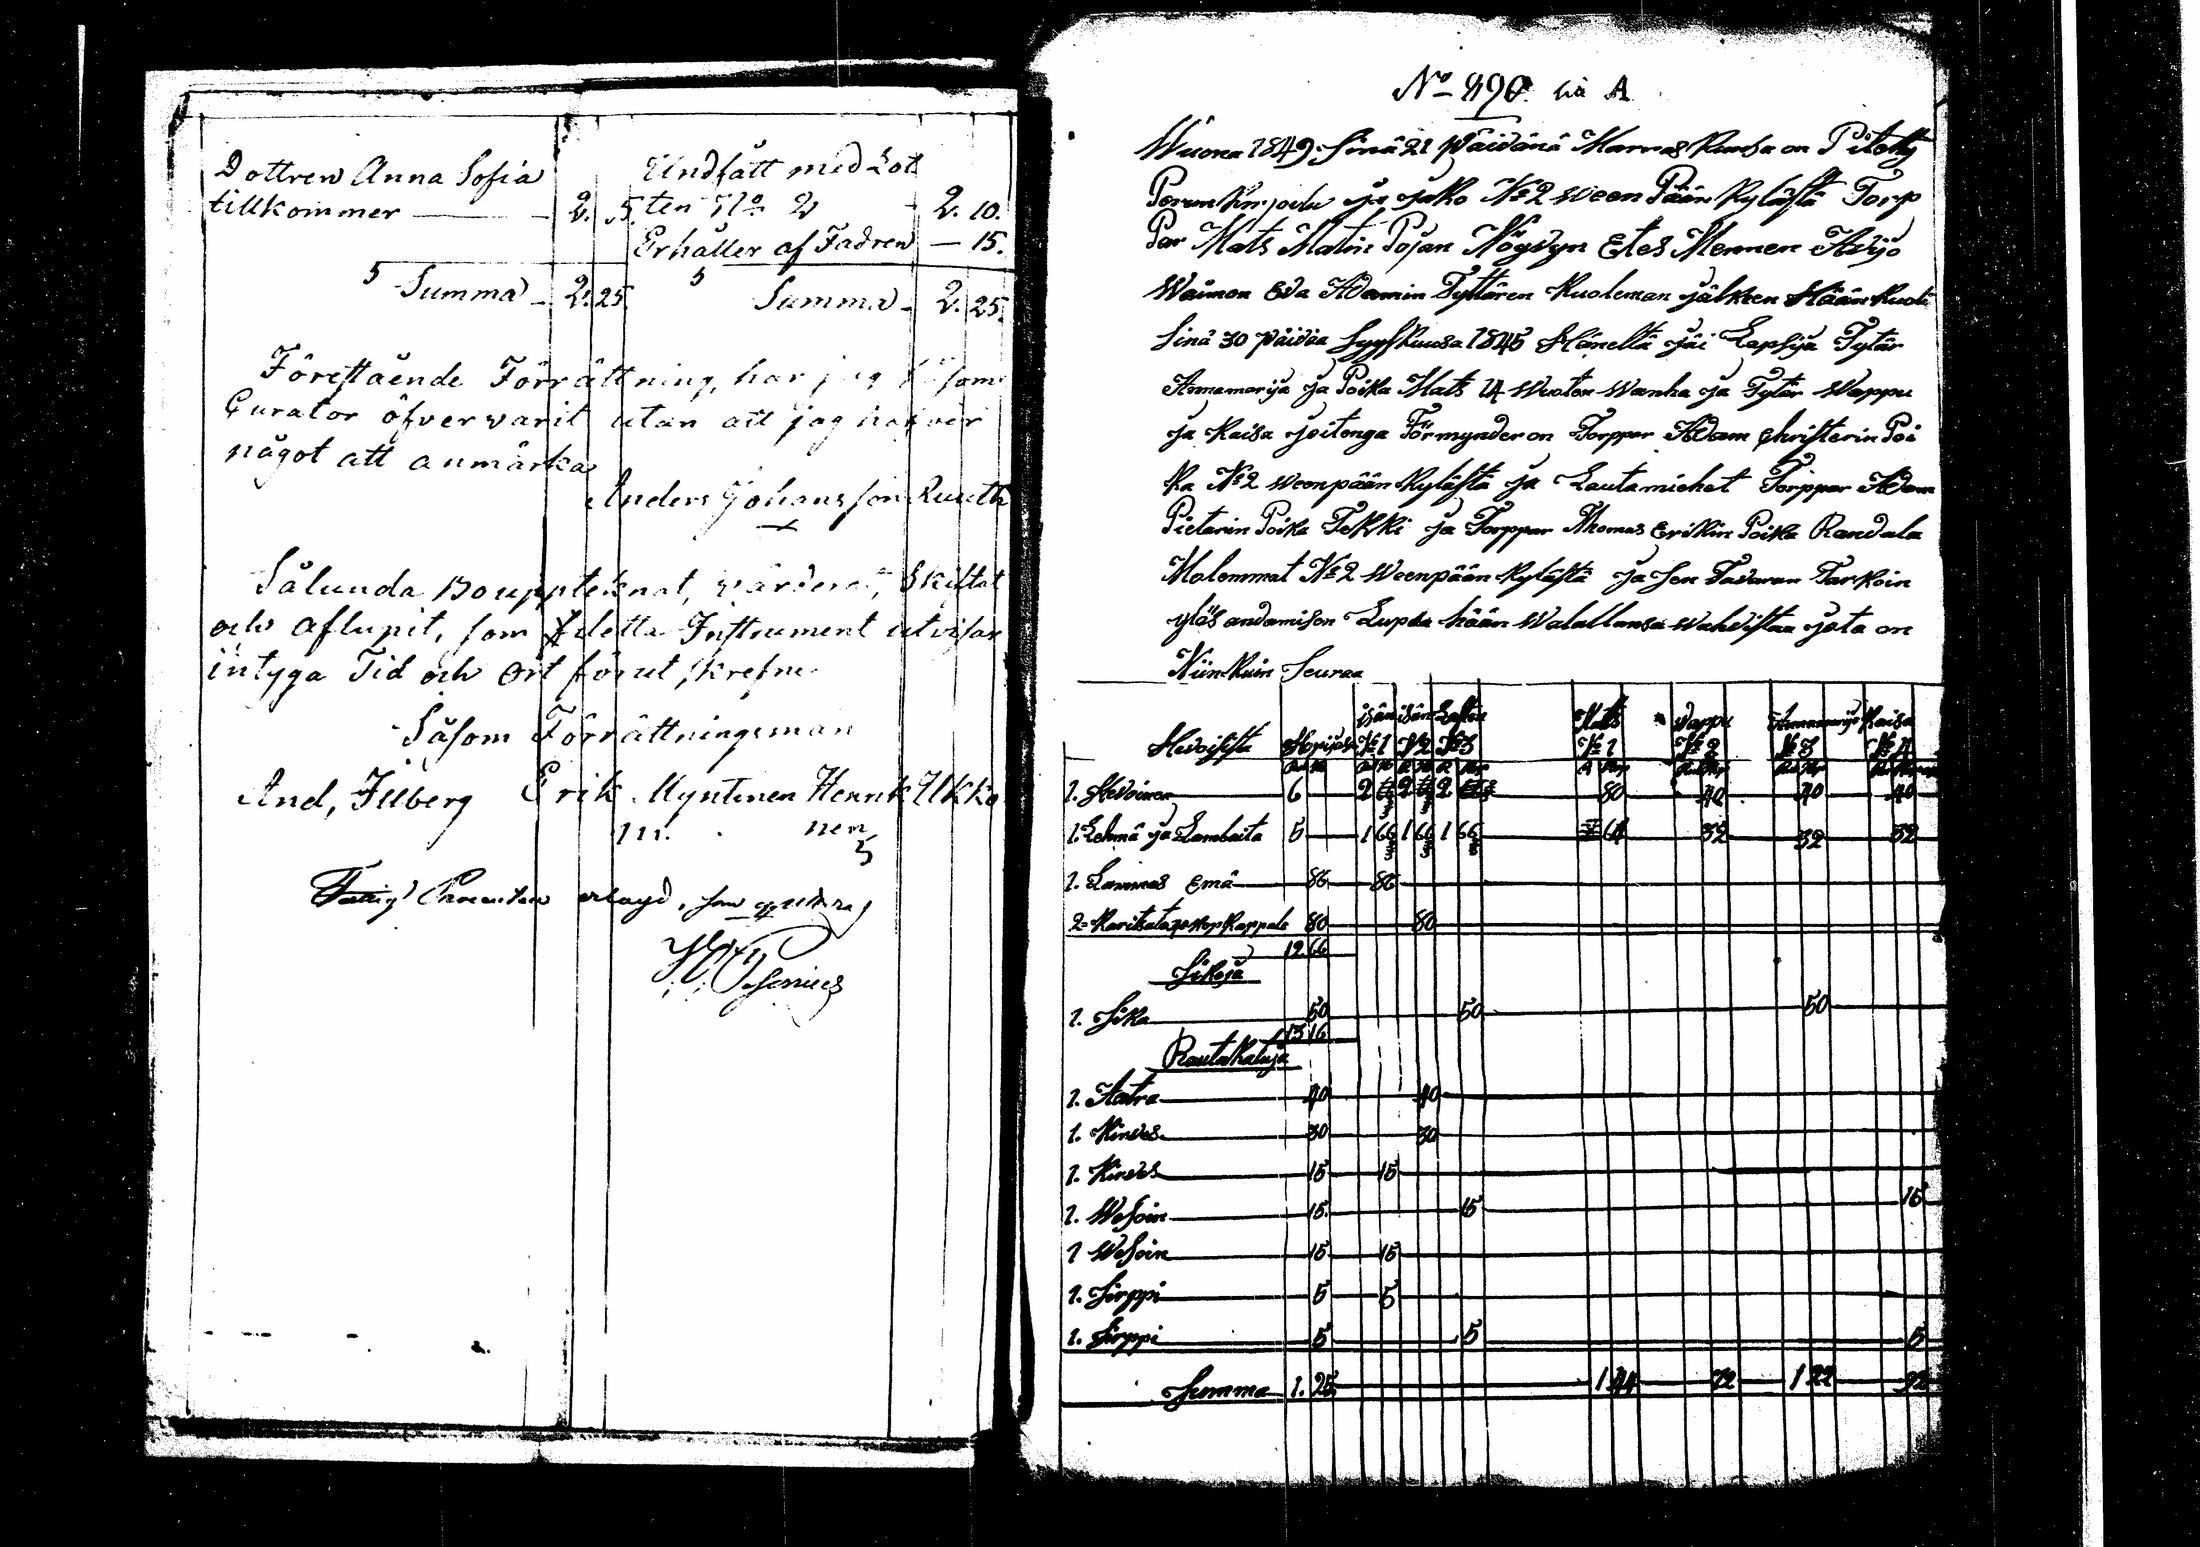 Dottren Anna Sofia
tillkommer — 2. 5.
5 Summa – 2.25.
Undfått med Lot
ten No 2 – 2. 10.
Erhåller af Fadren — 15.
5 Summa – 2. 25.
Föreſtående Förrättning, har jag såſom
Curator öfvervarit utan att jag hafver
något att anmärka
Anders Johansſon Ruuth
Sålunda Bouppteknat, värderat, Skiftat
och aflupit, ſom detta Inſtrument utviſar
intyga Tid och Ort förut ſkrefne
Såſom Förrättningsman
And, Illberg Erik Myntinen Henrik Ukko
nen
No 490 Lit A
Wuona 1849 Sinä 21 päivänä Marras Kuusa on Pitety
Perun Kirjoitu ja jako No 2 Weenpään Kyläſtä Torp
Par Mats Matin Pojan Nöysyn Etes Mennen Avijo
Waimon Eva Adamin Tyttären Kuoleman jälkeen Hään Kuoli
Sinä 30 päivää Syyſkuusa 1845 Häneltä jäi Lapſija Tytär
Annamarija ja Poika Mats 14 Wuoten Wanha ja Tytär Wappu
ja Kaisa joitenga Förmynder on Torppar Adam Christerin Poi
ka No 2 Weenpään Kyläſtä ja Lautamiehet Torppar Adam
Pieterin Poika Tekki ja Torppar Thomas Erikin Poika Randala
Molemmat No 2 Weenpään Kyläſtä ja Sen Tavaran Tarkoin
ylös andamisen Lupaa hään Walallansa Wahvistaa jota on
Niinkuin Seuraa
Hevoiſista Isän Isän Lasten Mats Wappu Annamarija Kaisa
No 1 No 2 No 3 No 1 No 2 No 3 No 4
1. Hevoinen 6 2 2 2 80 40 40 40
1. Lehmä ja Lambaita 5 1 66 1 66 1 66 64 32 32 32
1. Lammas Emä 86 86
2 Karitsata 40 Kop Kappale 80 80
12 66
Sikoja
1. Sika 50 50 50
13 16
Rautakaluja
1. Aatra 40 40
1. Kirves 30 30
1. Kirves 15 15
1. Weſoin 15. 15 15
1 Weſoin 15 15
1. Sirppi 5 5
1. Sirppi 5 5 5
Summa 1. 25 1 44 72 1 22 92